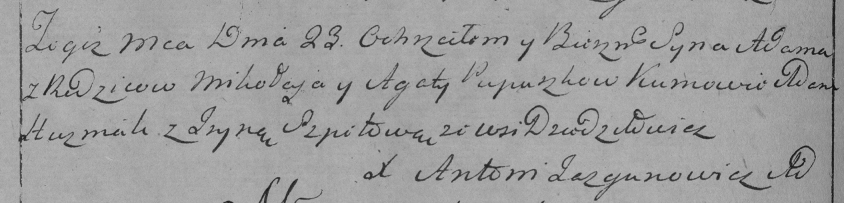 Tegoż mca Dnia 23. Ochrzciłem y Bierzm Syna Adama
z Rodzicow Mikołaja y Agaty Papuszkow Kumowie Adam
Huzmak z Iryną Szpitową ze wsi Dziedziłowicz
X Antoni Łazgunowicz AD